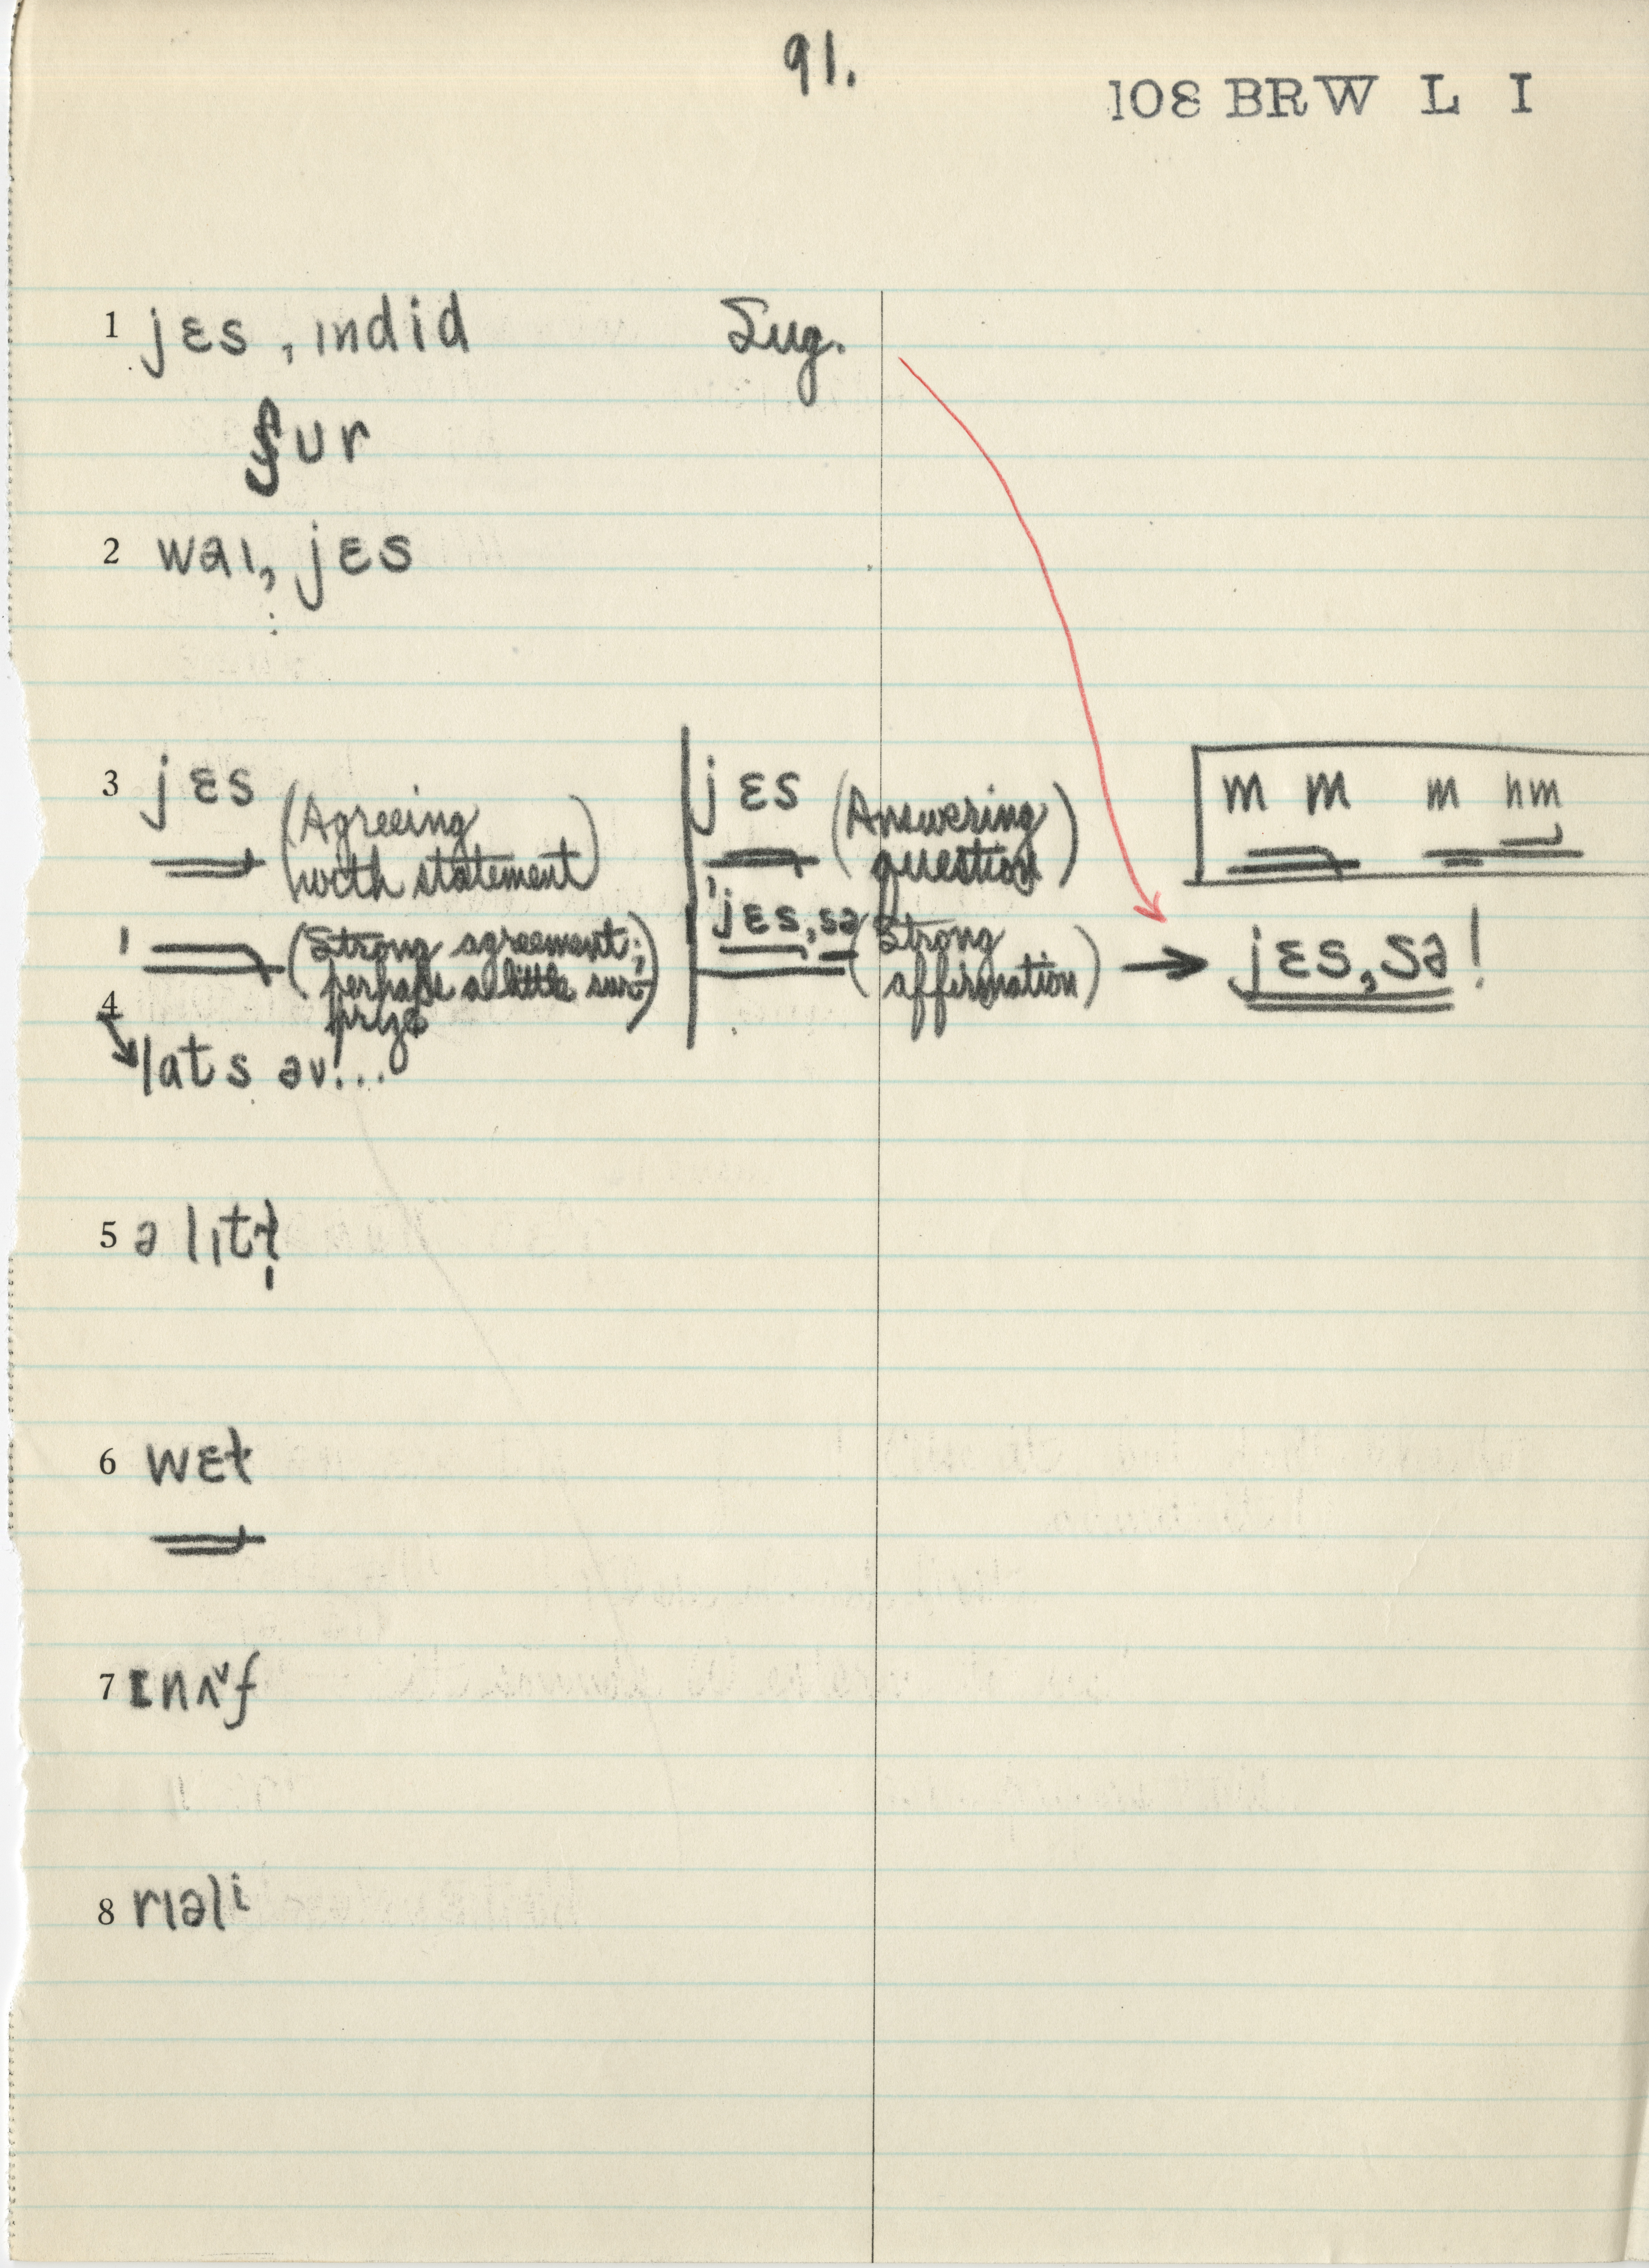 91.
108 BRW L I
1 jɛs, ındid Sug.
ʃur
2 waı, jɛs
3 jɛs (Agreeing with statement) jɛs (Answering question) m m m hm
(Strong agreement; perhaps a little surprize) ˈjɛs, sə (Strong affirmation) → jɛs, sə!
4
lats əv...
5 ə lıtɫ̩
6 wɛɫ
7 ɪnʌ˅f
8 rıəlⁱ